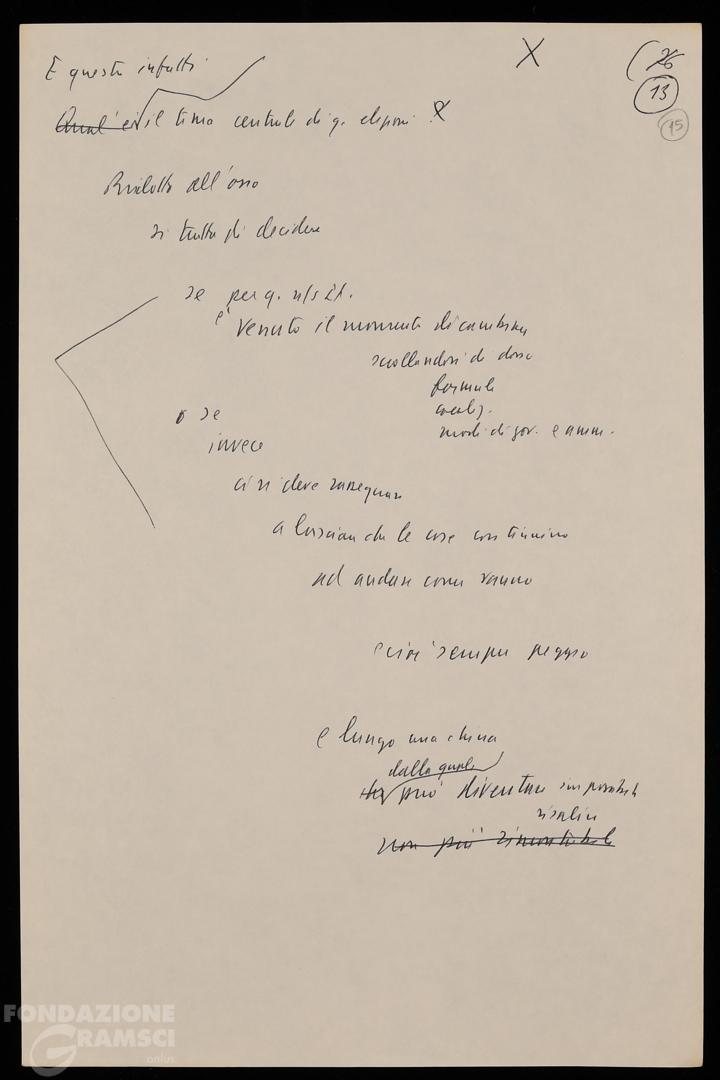 E questo infatti
X
(26
13
15
Qual'è il tema centrale di q. elezioni ?
Ridotto all'osso
si tratta di decidere
se per q.
è venuto il momento di cambiare
scrollandosi di dosso
formule
coaliz.
modi di gov. e amm.
o se
invece
ci si deve rassegnare
a lasciare che le cose continuino
ad andare come vanno
cioè sempre peggio
e lungo una china
dalla quale
può diventare impossibile
risalire
non più rimontabile
FONDAZIONE
GRAMSCI
onlus